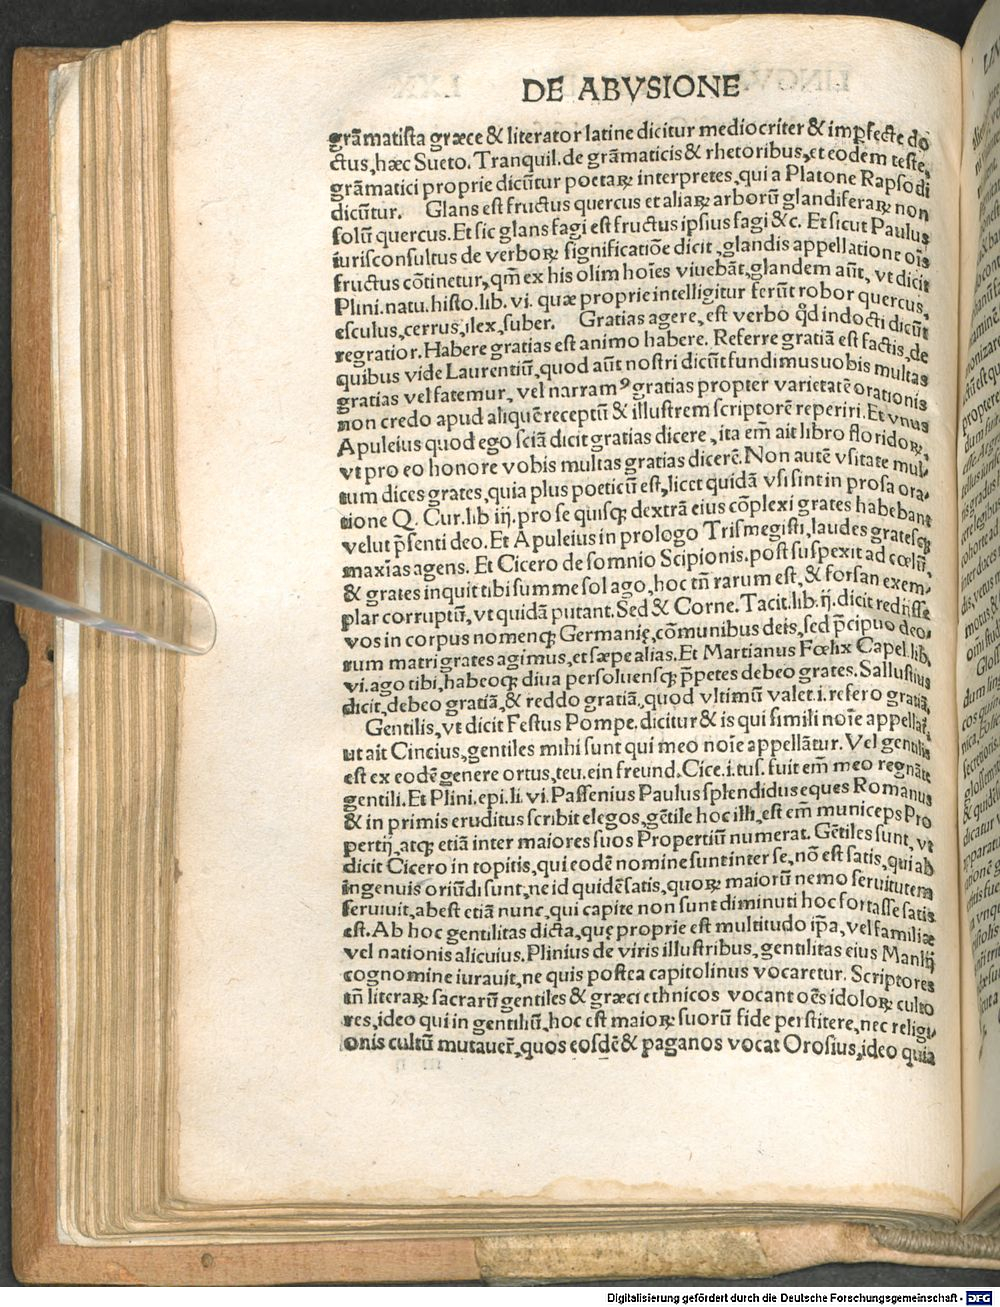 DE ABVSIONE
grãmatista græce & literator latine dicitur mediocriter & imꝑfecte do
ctus, hæc Sueto. Tranquil. de grãmaticis & rhetoribus, et eodem teste,
grãmatici proprie dicũtur poetaꝝ interpretes, qui a Platone Rapsodi
dicũtur. Glans est fructus quercus et aliaꝝ arborũ glandiferaꝝ non
solũ quercus. Et sic glans fagi est fructus ipsius fagi &c. Et sicut Paulus
iurisconsultus de verboꝝ significatiõe dicit, glandis appellatione oĩs
fructus cõtinetur, qm̃ ex his olim hoĩes viuebãt, glandem aũt, vt dicit
Plini. natu. histo. lib. vi. quæ proprie intelligitur ferũt robor quercus,
esculus, cerrus, ilex, suber. Gratias agere, est verbo qd̃ indocti dicũt
regratior. Habere gratias est animo habere. Referre gratiã est factis, de
quibus vide Laurentiũ, quod aũt nostri dicũt fundimus uobis multas
gratias vel fatemur, vel narramꝰ gratias propter varietatẽ orationis
non credo apud aliquẽ receptũ & illustrem scriptorẽ reperiri. Et vnus
Apuleius quod ego sciã dicit gratias dicere, ita em̃ ait libro floridoꝝ,
vt pro eo honore vobis multas gratias dicerẽ. Non autẽ vsitate mul-
tum dices grates, quia plus poeticũ est, licet quidã vsi sint in prosa ora-
tione Q. Cur. lib iij. pro se quisqꝫ dextrã eius cõplexi grates habebant
velut p̃senti deo. Et Apuleius in prologo Trismegisti, laudes gratesqꝫ
maxĩas agens. Et Cicero de somnio Scipionis. post suspexit ad cœlũ,
& grates inquit tibi summe sol ago, hoc tñ rarum est, & forsan exem-
plar corruptũ, vt quidã putant. Sed & Corne. Tacit. lib. ij. dicit redijsse
vos in corpus nomenqꝫ Germanię, cõmunibus deis, sed p̃cipuo deo-
rum matri grates agimus, et sæpe alias. Et Martianus Fœlix Capel. lib.
vi. ago tibi, habeoqꝫ diua persoluensqꝫ p̃petes debeo grates. Sallustius
dicit, debeo gratiã, & reddo gratiã, quod vltimũ valet .i. refero gratiã,
Gentilis, vt dicit Festus Pompe. dicitur & is qui simili noĩe appellat̃,
ut ait Cincius, gentiles mihi sunt qui meo noĩe appellãtur. Vel gentilis
est ex eodẽ genere ortus, teu. ein freund. Cice. i. tus. fuit em̃ meo regnãte
gentili. Et Plini. epi. li. vi. Passenius Paulus splendidus eques Romanus
& in primis eruditus scribit elegos, gẽtile hoc illi, est em̃ municeps Pro
pertij, atqꝫ etiã inter maiores suos Propertiũ numerat. Gẽtiles sunt, vt
dicit Cicero in topitis, qui eodẽ nomine sunt inter se, nõ est satis, qui ab
ingenuis oriũdi sunt, ne id quidẽ satis, quoꝝ maiorũ nemo seruitutem
seruiuit, abest etiã nunc, qui capite non sunt diminuti hoc fortasse satis
est. Ab hoc gentilitas dicta, quę proprie est multitudo ip̃a, vel familiæ
vel nationis alicuius. Plinius de viris illustribus, gentilitas eius Manlij
cognomine iurauit, ne quis postea capitolinus vocaretur. Scriptores
tñ literaꝝ sacrarũ gentiles & græci ethnicos vocant oẽs idoloꝝ culto
res, ideo qui in gentiliũ, hoc est maioꝝ suorũ fide perstitere, nec religi-
onis cultũ mutauer̃, quos eosdẽ & paganos vocat Orosius, ideo quia
Digitalisierung gefördert durch die Deutsche Forschungsgemeinschaft - DFG